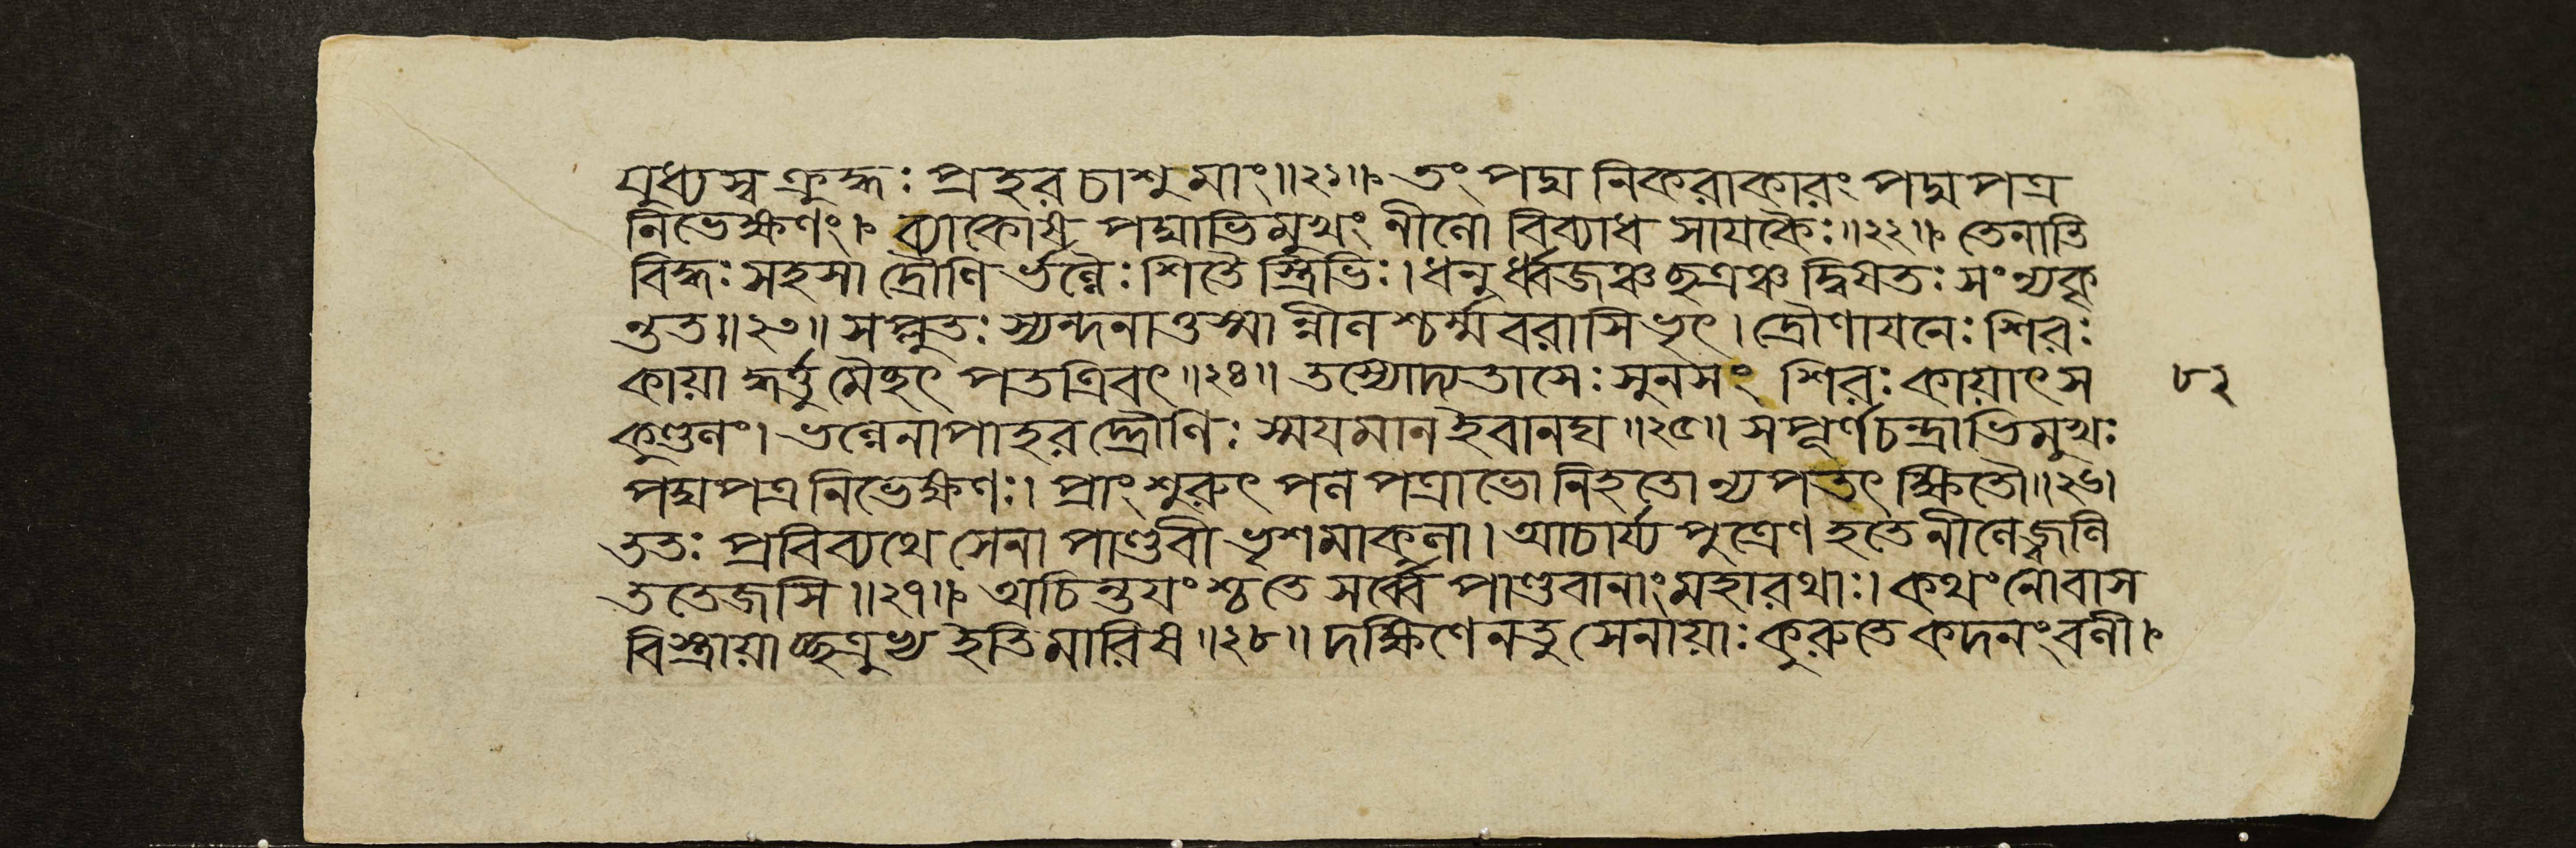 যুধ্যস্ব ক্রুদ্ধঃ প্রহর চাশু মাং॥২১॥ তং পদ্ম নিকরাকারং পদ্মপত্র
নিভেক্ষণং। ব্যাকোষ পদ্মাভিমুখং নীলো বিব্যাধ সায়কৈঃ॥২২॥ তেনাতি
বিদ্ধঃ সহসা দ্রৌণি র্ভল্লৈঃ শিতৈ স্ত্রিভিঃ। ধনু র্ধ্বজঞ্চ ছত্রঞ্চ দ্বিষতঃ সংন্যকৃ
ন্তত॥২৩॥ সপ্লুতঃ স্যন্দনাত্তস্মা ন্নীলশ্চর্ম্মবরাসিভৃৎ। দ্রৌণায়নেঃ শিরঃ
কায়া দ্ধর্ত্তু মৈচ্ছৎ পতত্রিবৎ॥২৪॥ তস্যোদ্যতাসেঃ সুনসং শিরঃ কায়াৎস
কুণ্ডলং। ভল্লেনাপাহরদ্দ্রৌণিঃ স্ময়মান ইবানঘ॥২৫॥ সম্পূর্ণচন্দ্রাভিমুখঃ
পদ্মপত্র নিভেক্ষণঃ। প্রাংশুরুৎ পল পত্রাভো নিহতো ন্যপতৎ ক্ষিতৌ॥২৬।
ততঃ প্রবিব্যথে সেনা পাণ্ডবী ভৃশমাকুলা। আচার্য্য পুত্রেণ হতে নীলে জ্বলি
ততেজসি॥২৭॥ অচিন্তয়ং শ্চ তে সর্ব্বে পাণ্ডবানাং মহারথাঃ। কথং নো বাস
বিস্ত্রায়াচ্ছত্রুভ্য ইতি মারিষ॥২৮॥ দক্ষিণেন তু সেনায়াঃ কুরুতে কদনং বলী।
৮২